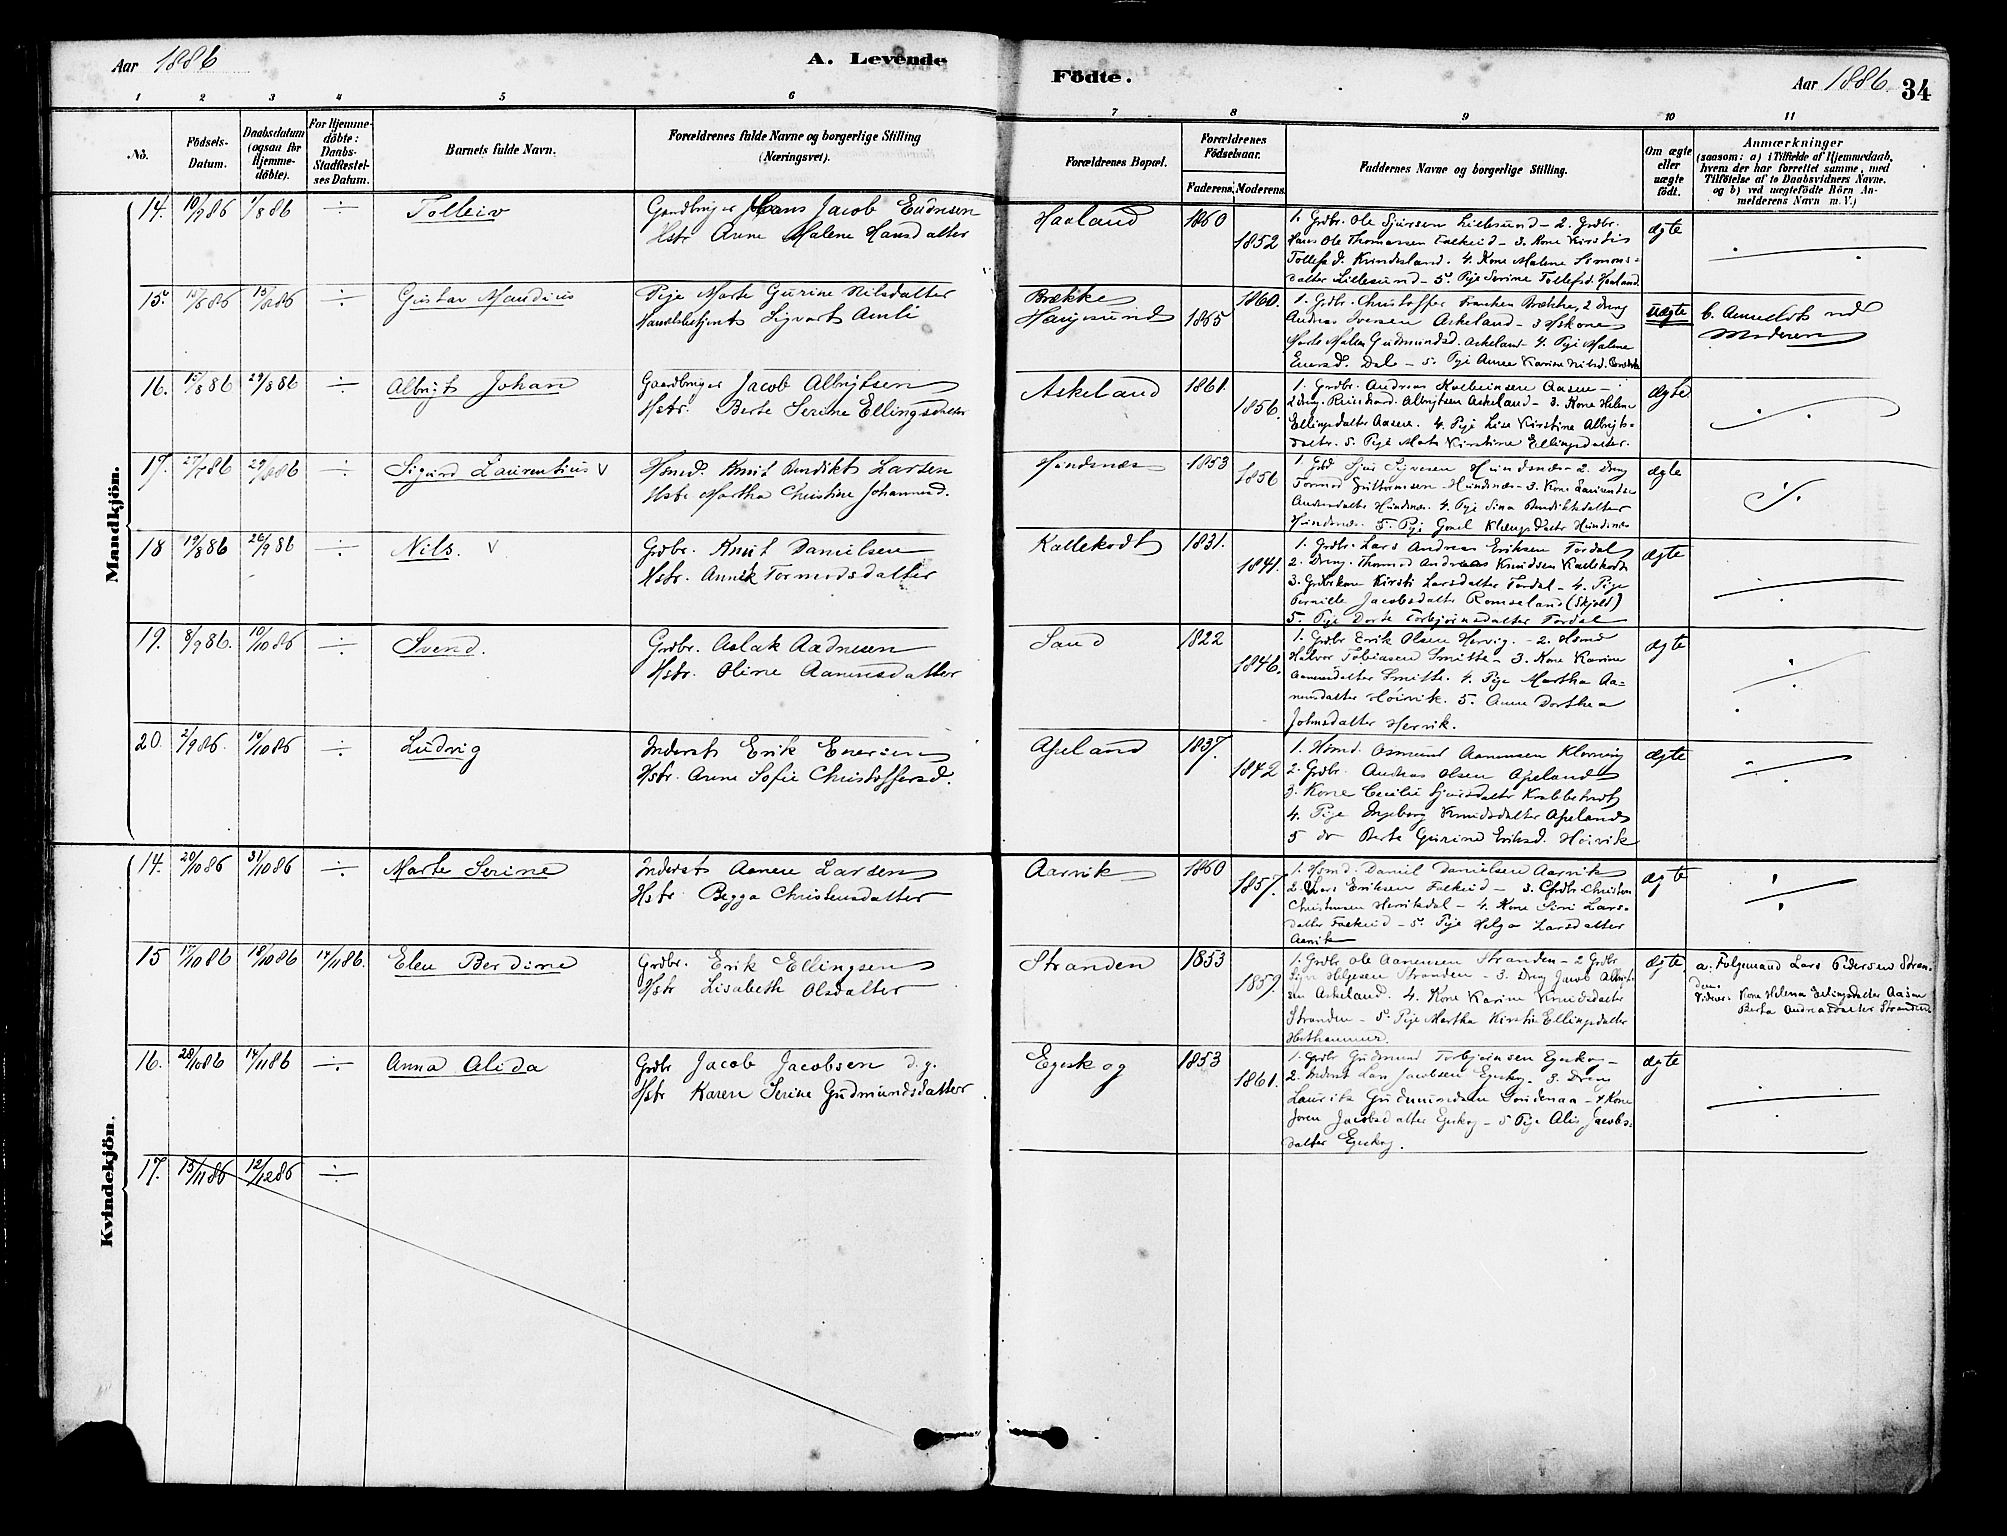 Aar 1886
A. Levende
Födte.
Aar 1886.
34
1 2 3 4 5 6 7 8 9 10 11
No.
Födsels-Datum.
Daabsdatum (ogsaa for Hjemmedöbte).
For Hjemmedöbte: Daabs-Stadfæstelses Datum.
Barnets fulde Navn.
Forældrenes fulde Navne og borgerlige Stilling (Næringsvei).
Forældrenes Bopæl.
Forældrenes Födselsaar.
Faderens. Moderens.
Faddernes Navne og borgerlige Stilling.
Om ægte eller uægte födt.
Anmærkninger
(saasom: a) i Tilfælde af Hjemmedaab, hvem der har forrettet samme, med Tilföielse af to Daabsvidners Navne, og b) ved uegtefödte Börn Anmelderens Navn m. V.)
Mandkjön.
14. 10/7 86 1/8 86 ÷ Tolleiv
Gaardbruger Hans Jacob Endresen
Hstr Anne Malene Hansdatter
Haaland 1860 1852
1. Grdbr. Ole Sjursen Lillesund - 2. Grdbr.
Hans Ole Thomassen Falkeid - 3. Kone Kirsti
Tollefsd. Kvindesland. 4. Kone Malene Simons-
datter Lillesund - 5. Pige Serine Tollefsd. Haaland
ægte
15. 15/8 86 ÷ Gustav Mandius
Pige Marte Gurine Nilsdatter
Handelsbetjent Sigvart Amli
Brække
Haugesund 1865 1860.
1. Grdbr. Christoffer Brække, 2 Dreng
Andreas Iversen Askeland - 3 Hskone
Marte Malene Gudmundsd. Askeland - 4. Pige Malene
Enersd. Dal - 5. Pige Anne Karine Nilsd.
uægte
b. Anmeldt ved
Moderen
16. 15/8 86 29/8 86 ÷ Albrigt Johan
Gaardbruger Jacob Albrigtsen
Hstr. Berte Serine Ellingsdatter
Askeland 1861. 1856.
1. Grdbr. Andreas Kolbeinsen Aasen -
2 Dreng. Albrigtsen Askeland - 3. Kone Helene
Ellingsdatter Aasen. 4. Pige Lise Kirstine Albrigts-
datter. 5. Pige Kirstine Ellingsdatter.
ægte
17. 29/8 86 ÷ Sigurd Laurentius V
Hsmd. Knut Bendikt Larsen
Hstr Martha Christine Johannesd.
Hundsnæs 1853 1856
Hundsnæs - 2. Dreng
Tormod Hundsnæs - 3. Kone
Andersdatter Hundsnæs. 4. Pige Sina Bendiktsdatter
Hundsnæs. 5. Pige Hundsnæs
ægte
18 19/8 86 26/9 86 ÷ Nils. V
Grdbr. Knut Danielsen
Hstr. Annik Tormodsdatter
Kallekodt 1831. 1841.
1. Grdbr. Lars Andreas Eriksen Fördal
2. Dreng. Thomod Andreas Knudsen Kallekodt
3. Grdbrkone Kirsti Larsdatter Fördal - 4. Pige
Pernille Jacobsdatter Romseland (Skjold)
5. Pige Dorte Torbjörnsdatter Fördal
ægte
19. 8/9 86. 10/10 86 ÷ Svend.
Grdbr. Aslak Aadnesen
Hstr. Oline Aanensdatter
Sand 1822 1846.
1. Grdbr Erik Olsen Hervig. - 2. Hsmd
Halvor Tobiasen Smitte - 3. Kone Karine
Aanensdatter Smitte. 4. Pige Martha Aa-
nensdatter Höivik. 5. Anne Dorthea
Johnsdatter Hervik.
ægte
20. 2/9 86. 10/10 86 ÷ Ludvig
Inderst Erik Enersen
Hstr. Anne Sofie Christoffersd.
Apeland 1837. 1842
1. Hsmd. Osmund Aanensen
2. Grdbr. Andreas Olsen Apeland
3. Kone Cecilie Sjursdatter
4. Pige Ingeborg Knudsdatter Apeland
5 do Berte Gurine Eriksd. Höivik
ægte
Kvindekjön.
14. 20/10 86 31/10 86 ÷ Marte Serine
Inderst Aanen Larsen
Hstr Begga Christensdatter
Aarvik 1860 1857.
1. Hsmd. Daniel Danielsen Aarvik
2. Lars Eriksen Falkeid - 3. Grdbr. Christen
Christensen Hervikdal - 4. Kone Siri Lars-
datter Falkeid - 5. Pige Helga Larsdatter
Aarvik
ægte
15 17/10 86 18/10 86 14/11 86. Elen Berdine
Grdbr. Erik Ellingsen
Hstr Lisabeth Olsdatter
Stranden 1853 1859.
1. Grdbr Ole Aanensen Stranden - 2 Grdbr
Helgesen Stranden - 3. Dreng Jacob Albrigt-
sen Askeland. 4. Kone Karine Knudsdatter
Stranden - 5. Pige Martha Kirstine Ellingsdatter
ægte.
a. Følgemand Lars Pedersen Stran-
den.
Vidner. Kone Helene Ellingsdatter Aasen
Berta Andreasdatter Stranden
16. 28/10 86 14/11 86 ÷ Anna Alida
Grdbr Jacob Jacobsen d.y.
Hstr Karen Serine Gudmundsdatter
Egeskog 1853 1861.
1. Grdbr Gudmund Torbjörnsen Egeskog -
2. Inderst Lars Jacobsen Egeskog. 3. Dreng
Laurits Gudmundsen - 4 Kone
Joren Jacobsdatter Egeskog - 5 Pige Alis Jacobs-
datter Egeskog.
ægte
17. 15/11 86 12/12 86 ÷